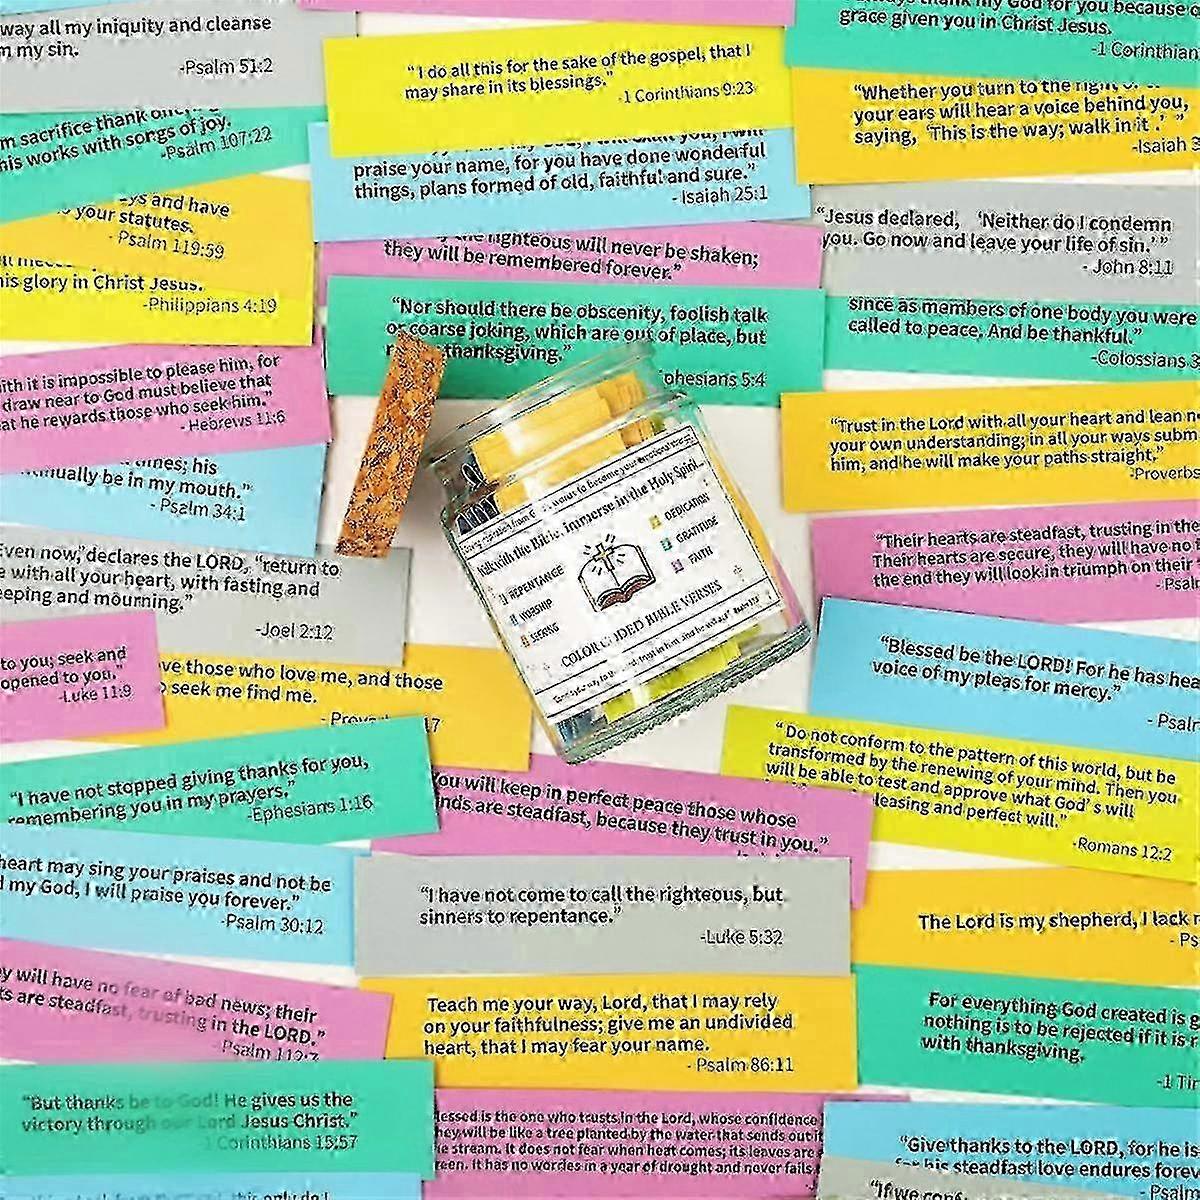 way all my iniquity and cleanse
m my sin.
-Psalm 51:2
m sacrifice thank
his works with songs of joy.
-Psalm 107:22
ys and have
your statutes.
- Psalm 119:59
his glory in Christ Jesus.
-Philippians 4:19
ith it is impossible to please him, for
draw near to God must believe that
at he rewards those who seek him."
- Hebrews 11:6
times; his
nually be in my mouth."
- Psalm 34:1
Even now," declares the LORD, "return to
e with all your heart, with fasting and
eeping and mourning."
-Joel 2:12
to you; seek and
opened to you."
-Luke 11:9
ve those who love me, and those
seek me find me.
- Prov 17
"I have not stopped giving thanks for you,
remembering you in my prayers."
-Ephesians 1:16
heart may sing your praises and not be
my God, I will praise you forever."
-Psalm 30:12
y will have no fear of bad news; their
ts are steadfast, trusting in the LORD."
-Psalm 112:7
"But thanks be to God! He gives us the
victory through our Lord Jesus Christ."
-1 Corinthians 15:57
"I do all this for the sake of the gospel, that I
may share in its blessings."
-1 Corinthians 9:23
praise your name, for you have done wonderful
things, plans formed of old, faithful and sure."
- Isaiah 25:1
the righteous will never be shaken;
they will be remembered forever."
"Nor should there be obscenity, foolish talk
or coarse joking, which are out of place, but
thanksgiving."
phesians 5:4
Walk with the Bible, immerse in the Holy Spirit
REPENTANCE
WORSHIP
SEEKING
DEDICATION
GRATITUDE
FAITH
COLOR CODED BIBLE VERSES
You will keep in perfect peace those whose
nds are steadfast, because they trust in you."
"I have not come to call the righteous, but
sinners to repentance."
-Luke 5:32
Teach me your way, Lord, that I may rely
on your faithfulness; give me an undivided
heart, that I may fear your name.
- Psalm 86:11
lessed is the one who trusts in the Lord, whose confidence
hey will be like a tree planted by the water that sends out it
e stream. It does not fear when heat comes; its leaves are
reen. It has no worries in a year of drought and never fails
always thank my God for you because o
grace given you in Christ Jesus.
-1 Corinthian
"Whether you turn to the right
your ears will hear a voice behind you,
saying, 'This is the way; walk in it .' "
-Isaiah 3
"Jesus declared, 'Neither do I condemn
you. Go now and leave your life of sin.' "
- John 8:11
since as members of one body you were
called to peace, And be thankful."
-Colossians 3
"Trust in the Lord with all your heart and lean n
your own understanding; in all your ways subm
him, and he will make your paths straight,"
-Proverbs
"Their hearts are steadfast, trusting in the
Their hearts are secure, they will have no
the end they will look in triumph on their
-Psal
"Blessed be the LORD! For he has hea
voice of my pleas for mercy."
- Psalr
"Do not conform to the pattern of this world, but be
transformed by the renewing of your mind. Then you
will be able to test and approve what God's will
leasing and perfect will."
-Romans 12:2
The Lord is my shepherd, I lack n
- Ps
For everything God created is g
nothing is to be rejected if it is r
with thanksgiving.
-1 Tir
"Give thanks to the LORD, for he is
his steadfast love endures forev
- Psalm
"If we conf